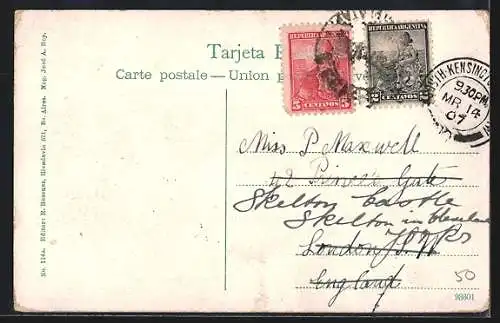 Tarjeta
Carte postale — Union
REPUBLICA ARGENTINA
5 CENTAVOS 5
REPUBLICA ARGENTINA
2 CENTAVOS
SOUTH-KENSINGTON
9.30PM
MR 14
07
Miss P Maxwell
42 Princes Gate
Skelton Castle
Skelton in Cleveland
Yorks
London S.W
England
50
98601
No. 116a. Editor: R. Rosauer, Rivadavia 571, Bs. Aires. Neg. José A. Rey.